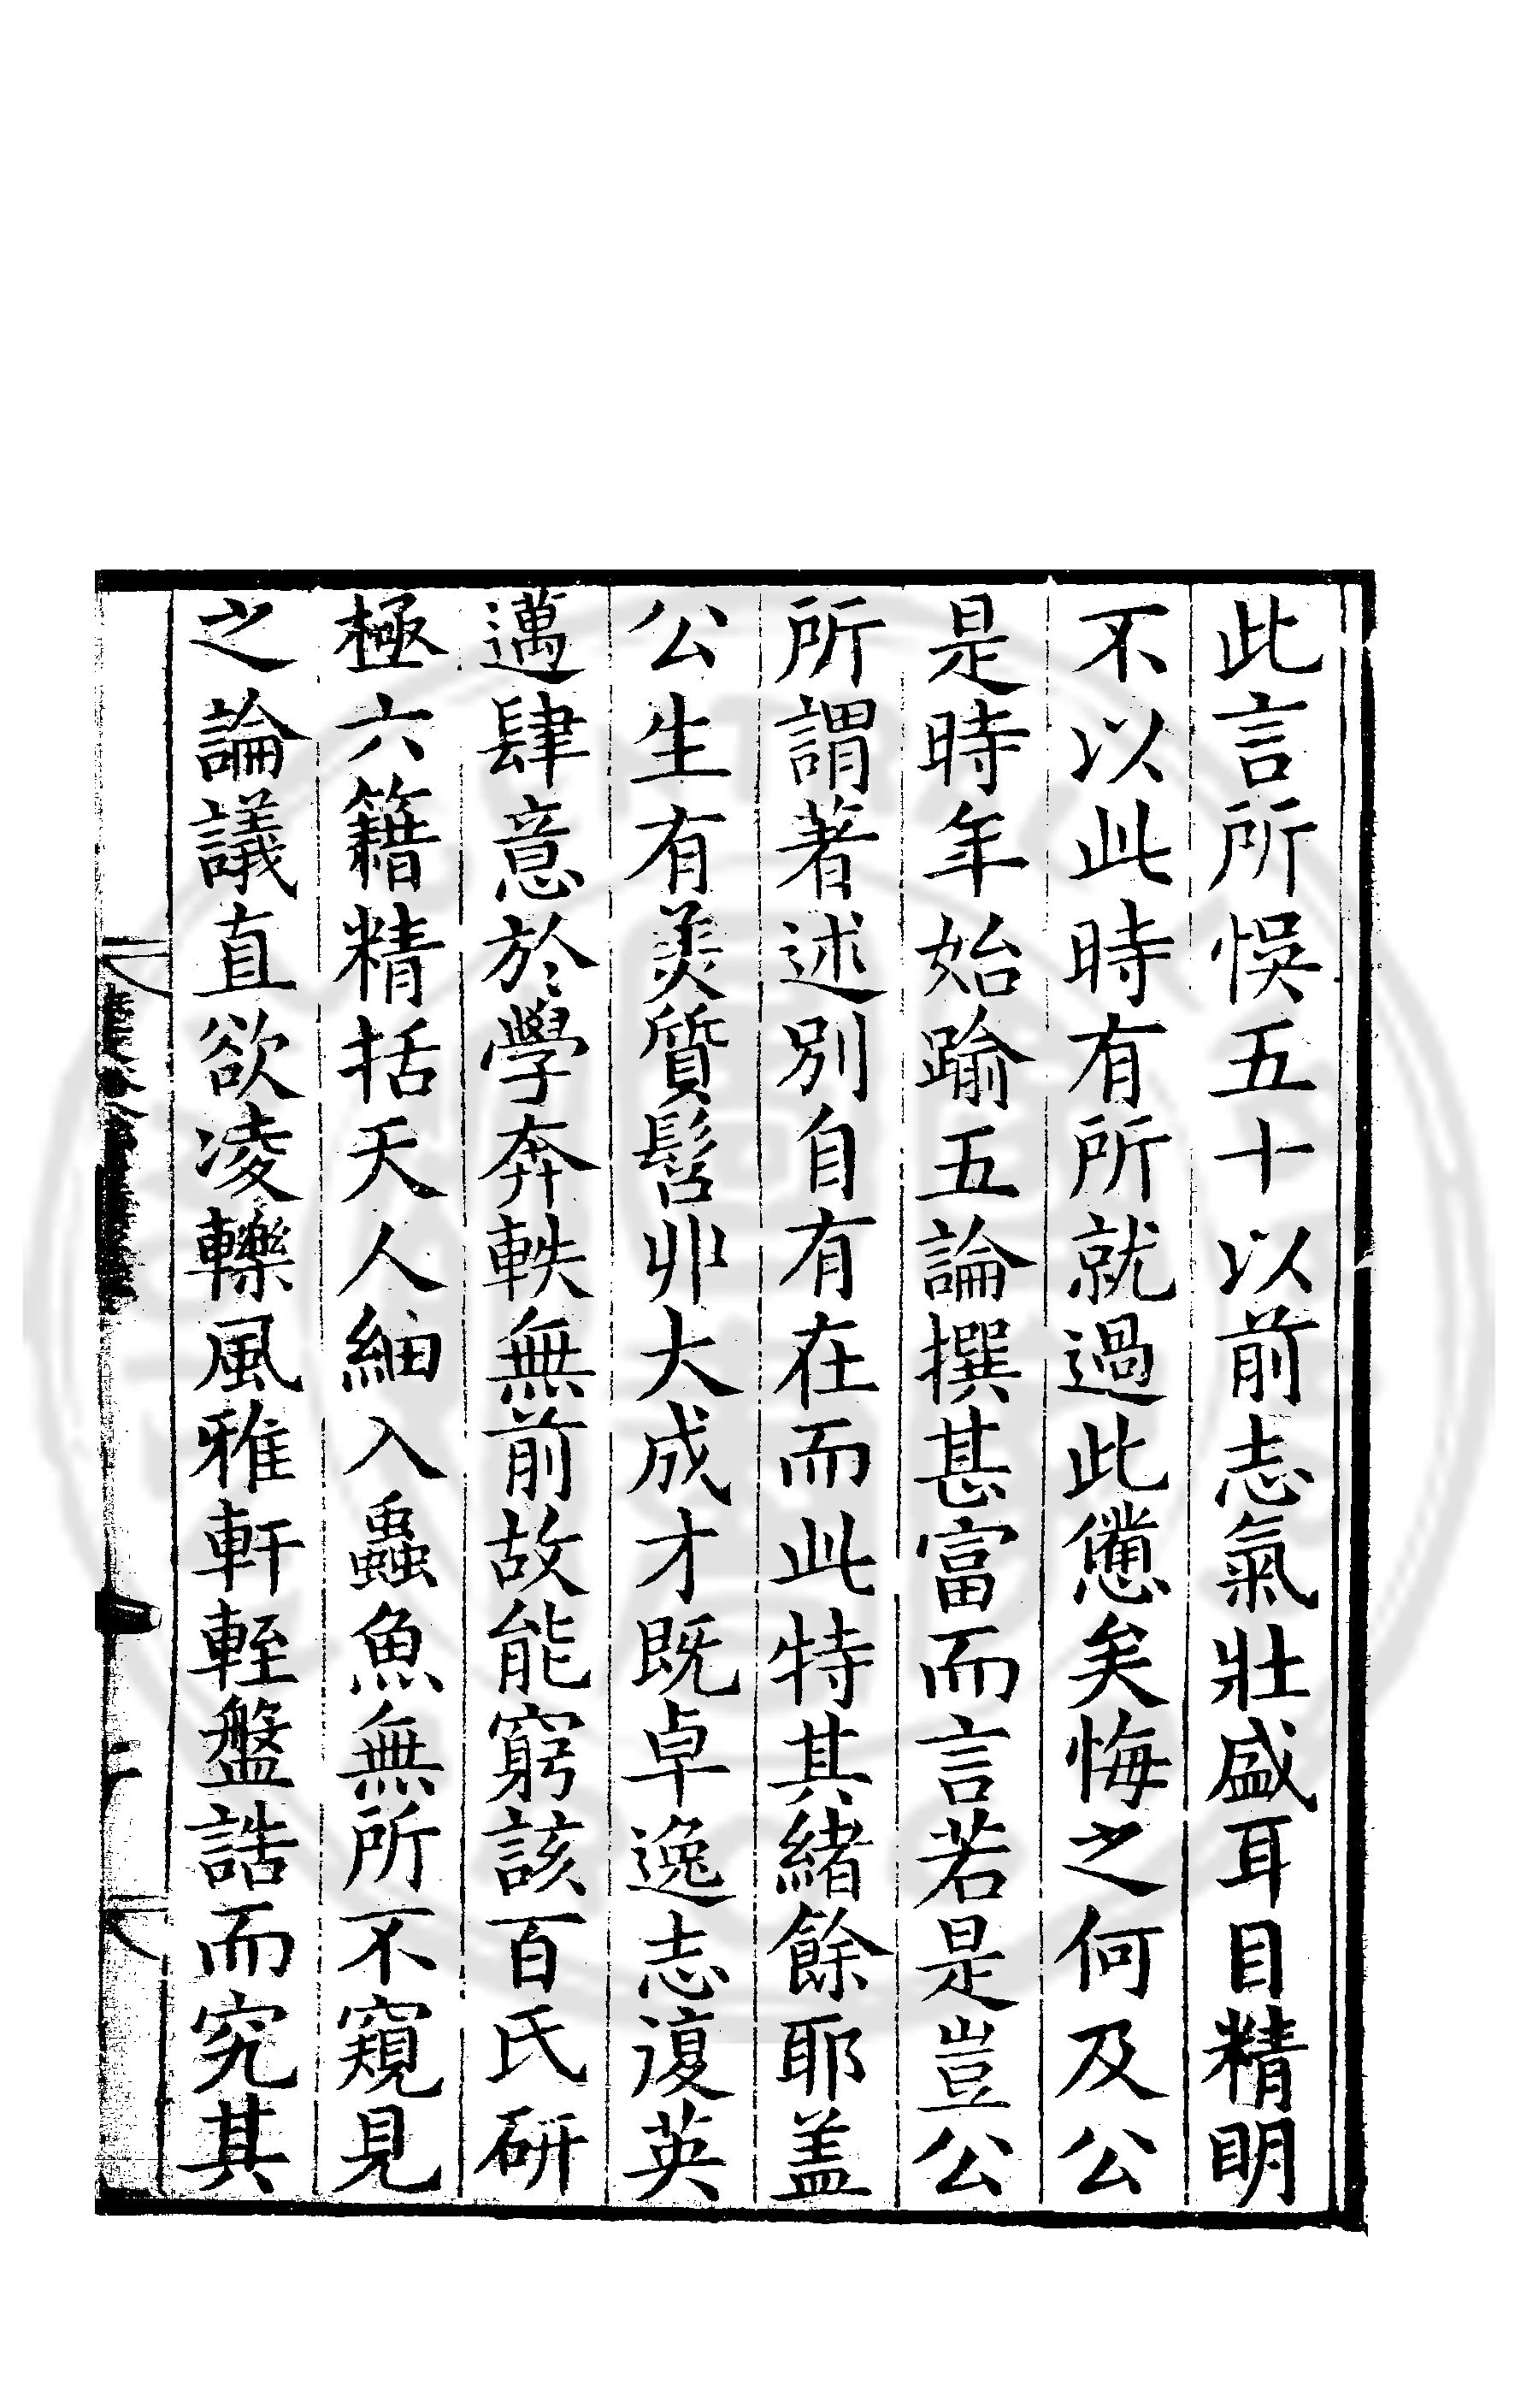 此言所悞五十以前志氣壯盛耳目精明
不以此時有所就過此憊矣悔之何及公
是時年始踰五論撰甚富而言若是豈公
所謂著述別自有在而此特其緒餘耶盖
公生有羙質髫丱大成才既卓逸志復英
邁肆意於學奔軼無前故能窮該百氏研
極六籍精括天人紬入蟲魚無所不窺見
之論議直欲凌轢風雅軒輊盤誥而究其